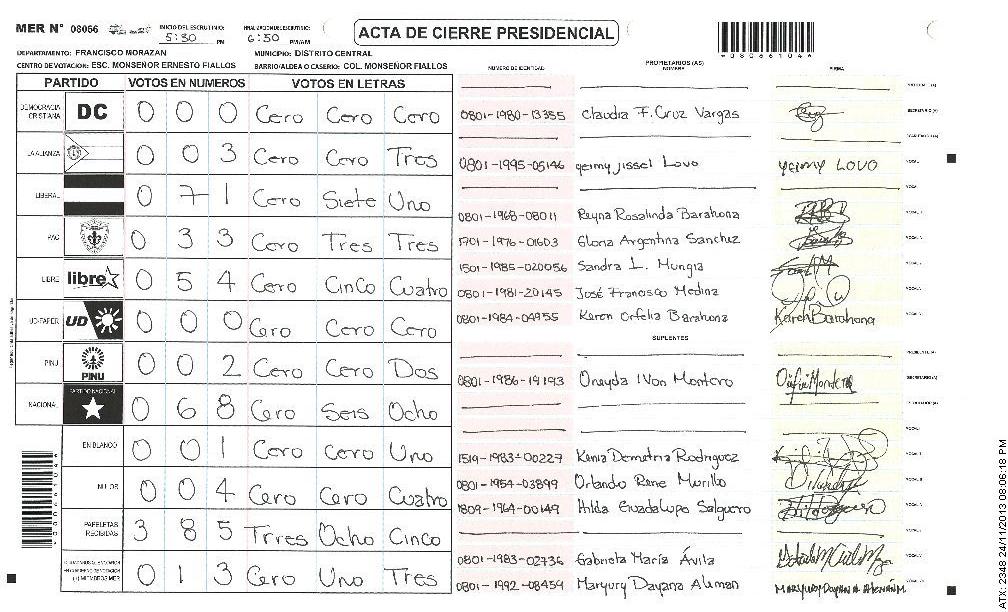 MER N° 08066 INICIO DEL ESCRUTINIO: 5:30 PM FINALIZACION DEL ESCRUTINIO: 6:50 PM/AM
ACTA DE CIERRE PRESIDENCIAL
DEPARTAMENTO: FRANCISCO MORAZAN MUNICIPIO: DISTRITO CENTRAL
CENTRO DE VOTACION: ESC. MONSEÑOR ERNESTO FIALLOS BARRIO/ALDEA O CASERIO: COL. MONSEÑOR FIALLOS
PARTIDO VOTOS EN NUMEROS VOTOS EN LETRAS
DEMOCRACIA CRISTIANA DC 0 0 0 Cero Cero Cero
LA ALIANZA 0 0 3 Cero Cero Tres
LIBERAL 0 7 1 Cero Siete Uno
PAC 0 3 3 Cero Tres Tres
LIBRE libre 0 5 4 Cero Cinco Cuatro
UD-FAPER UD 0 0 0 Cero Cero Cero
PINU PINU 0 0 2 Cero Cero Dos
NACIONAL PARTIDO NACIONAL 0 6 8 Cero Seis Ocho
EN BLANCO 0 0 1 Cero Cero Uno
NULOS 0 0 4 Cero Cero Cuatro
PAPELETAS RECIBIDAS 3 8 5 Trres Ocho Cinco
0 1 3 Cero Uno Tres
NUMERO DE IDENTIDAD PROPIETARIOS (AS) NOMBRE FIRMA
0801-1980-13355 Claudia F. Cruz Vargas
0801-1995-05146 yeimy jissel Lovo YEIMY LOVO
0801-1968-08011 Reyna Rosalinda Barahona
1701-1976-01603 Gloria Argentina Sanchez
1501-1985-020056 Sandra L. Mungia
0801-1981-20145 José Francisco Medina
0801-1984-04955 Karen Orfelia Barahona Karen Barahona
SUPLENTES
0801-1986-19193 Oneyda IVon Montero
1519-1983-00227 Kenia Demetria Rodriguez
0801-1954-03899 Orlando Rene Murillo
1809-1964-00149 Hilda Guadalupe Salguero
0801-1983-02736 Gabriela María Ávila
0801-1992-08459 Maryury Dayana Aleman
ATX-2348 24/11/2013 08:06:18 PM